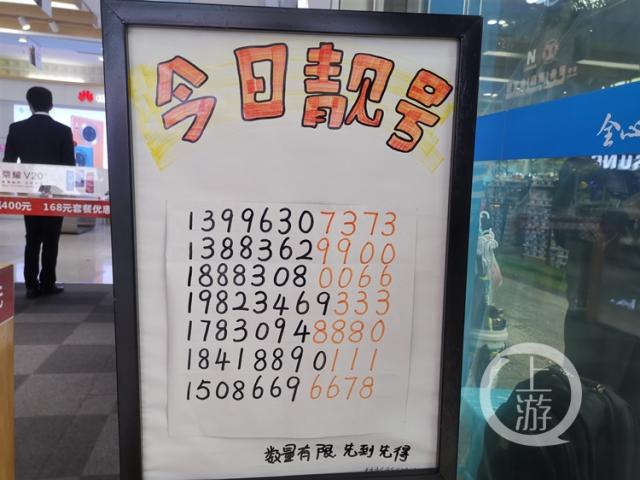 今日靓号
13996307373
13883629900
18883080066
19823469333
17830948880
18418890111
15086696678
数量有限 先到先得
荣耀V20
400元 168元套餐优惠
上游